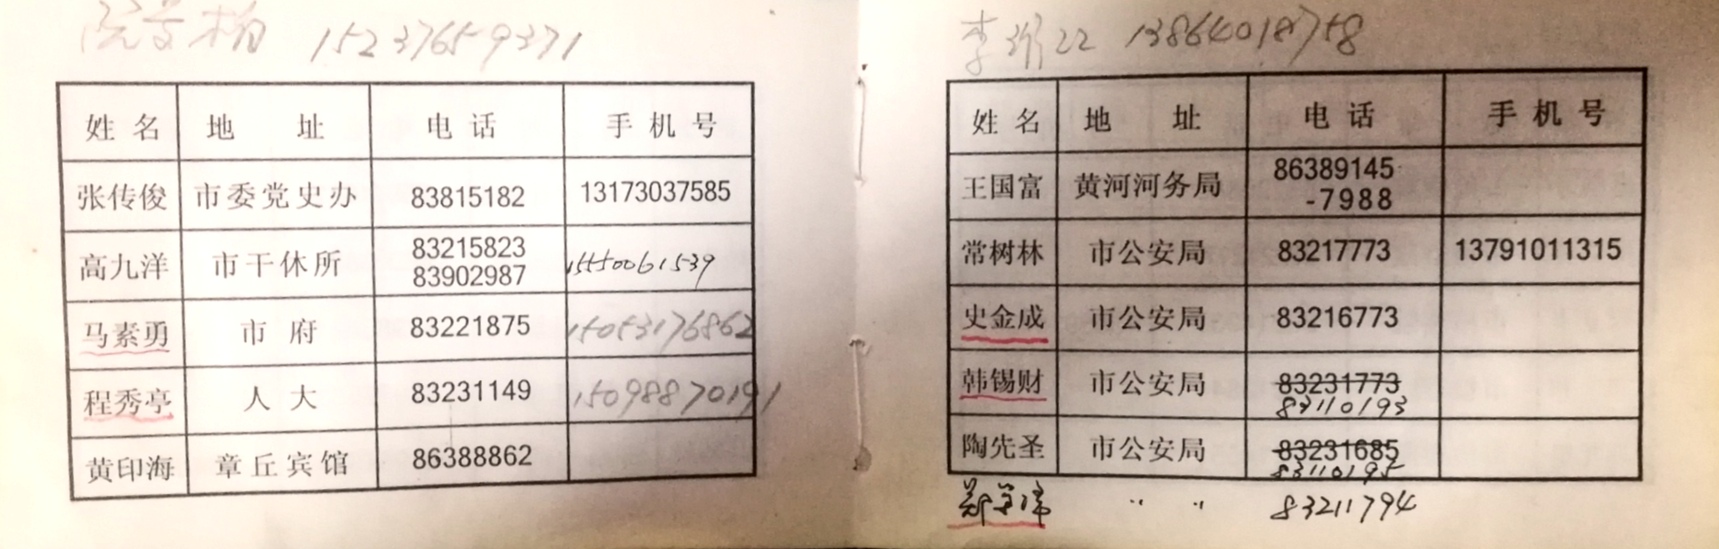 15237659371
姓名 地址 电话 手机号
张传俊 市委党史办 83815182 13173037585
高九洋 市干休所 83215823 83902987 15550061539
马素勇 市府 83221875 15053176862
程秀亭 人大 83231149 15098870191
黄印海 章丘宾馆 86388862
李 22 13864018758
姓名 地址 电话 手机号
王国富 黄河河务局 86389145-7988
常树林 市公安局 83217773 13791011315
史金成 市公安局 83216773
韩锡财 市公安局 83231773 83110193
陶先圣 市公安局 83231685 83110195
郑 〃 〃 83211794